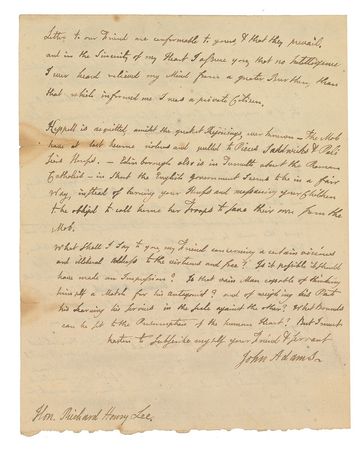 Letters to our Friend are conformable to yours, & that they prevail,
and in the Sincerity of my Heart I assure you, that no Intelligence
I ever heard relieved my Mind from a greater Burthen, than
that which informed me I was a private Citizen.
Keppell is acquitted, amidst the greatest Rejoicings, ever known — The Mob
have at last become riotous and pulled to Pieces Sandwichs & Pali-
sers House. — Edinborough also is in Tumult about the Roman
Catholics — in Short the English Government seems to be in a fair
Way, instead of burning your Houses and massacring your Children
to be obliged to call home her Troops to save their own from the
Mob.
What shall I say to you, my Friend concerning a certain
and illiberal address to the virtuous and free? Is it possible it should
have made an Impression? Is that vain Man capable of thinking
himself a Match for his antagonist? and of weighing his Parts
his Learning his Services in the Scale against the other? What Bounds
can be set to the Presumption of the human Heart? But I must
hasten to subscribe myself your Friend & Servant
John Adams
Hon. Richard Henry Lee.